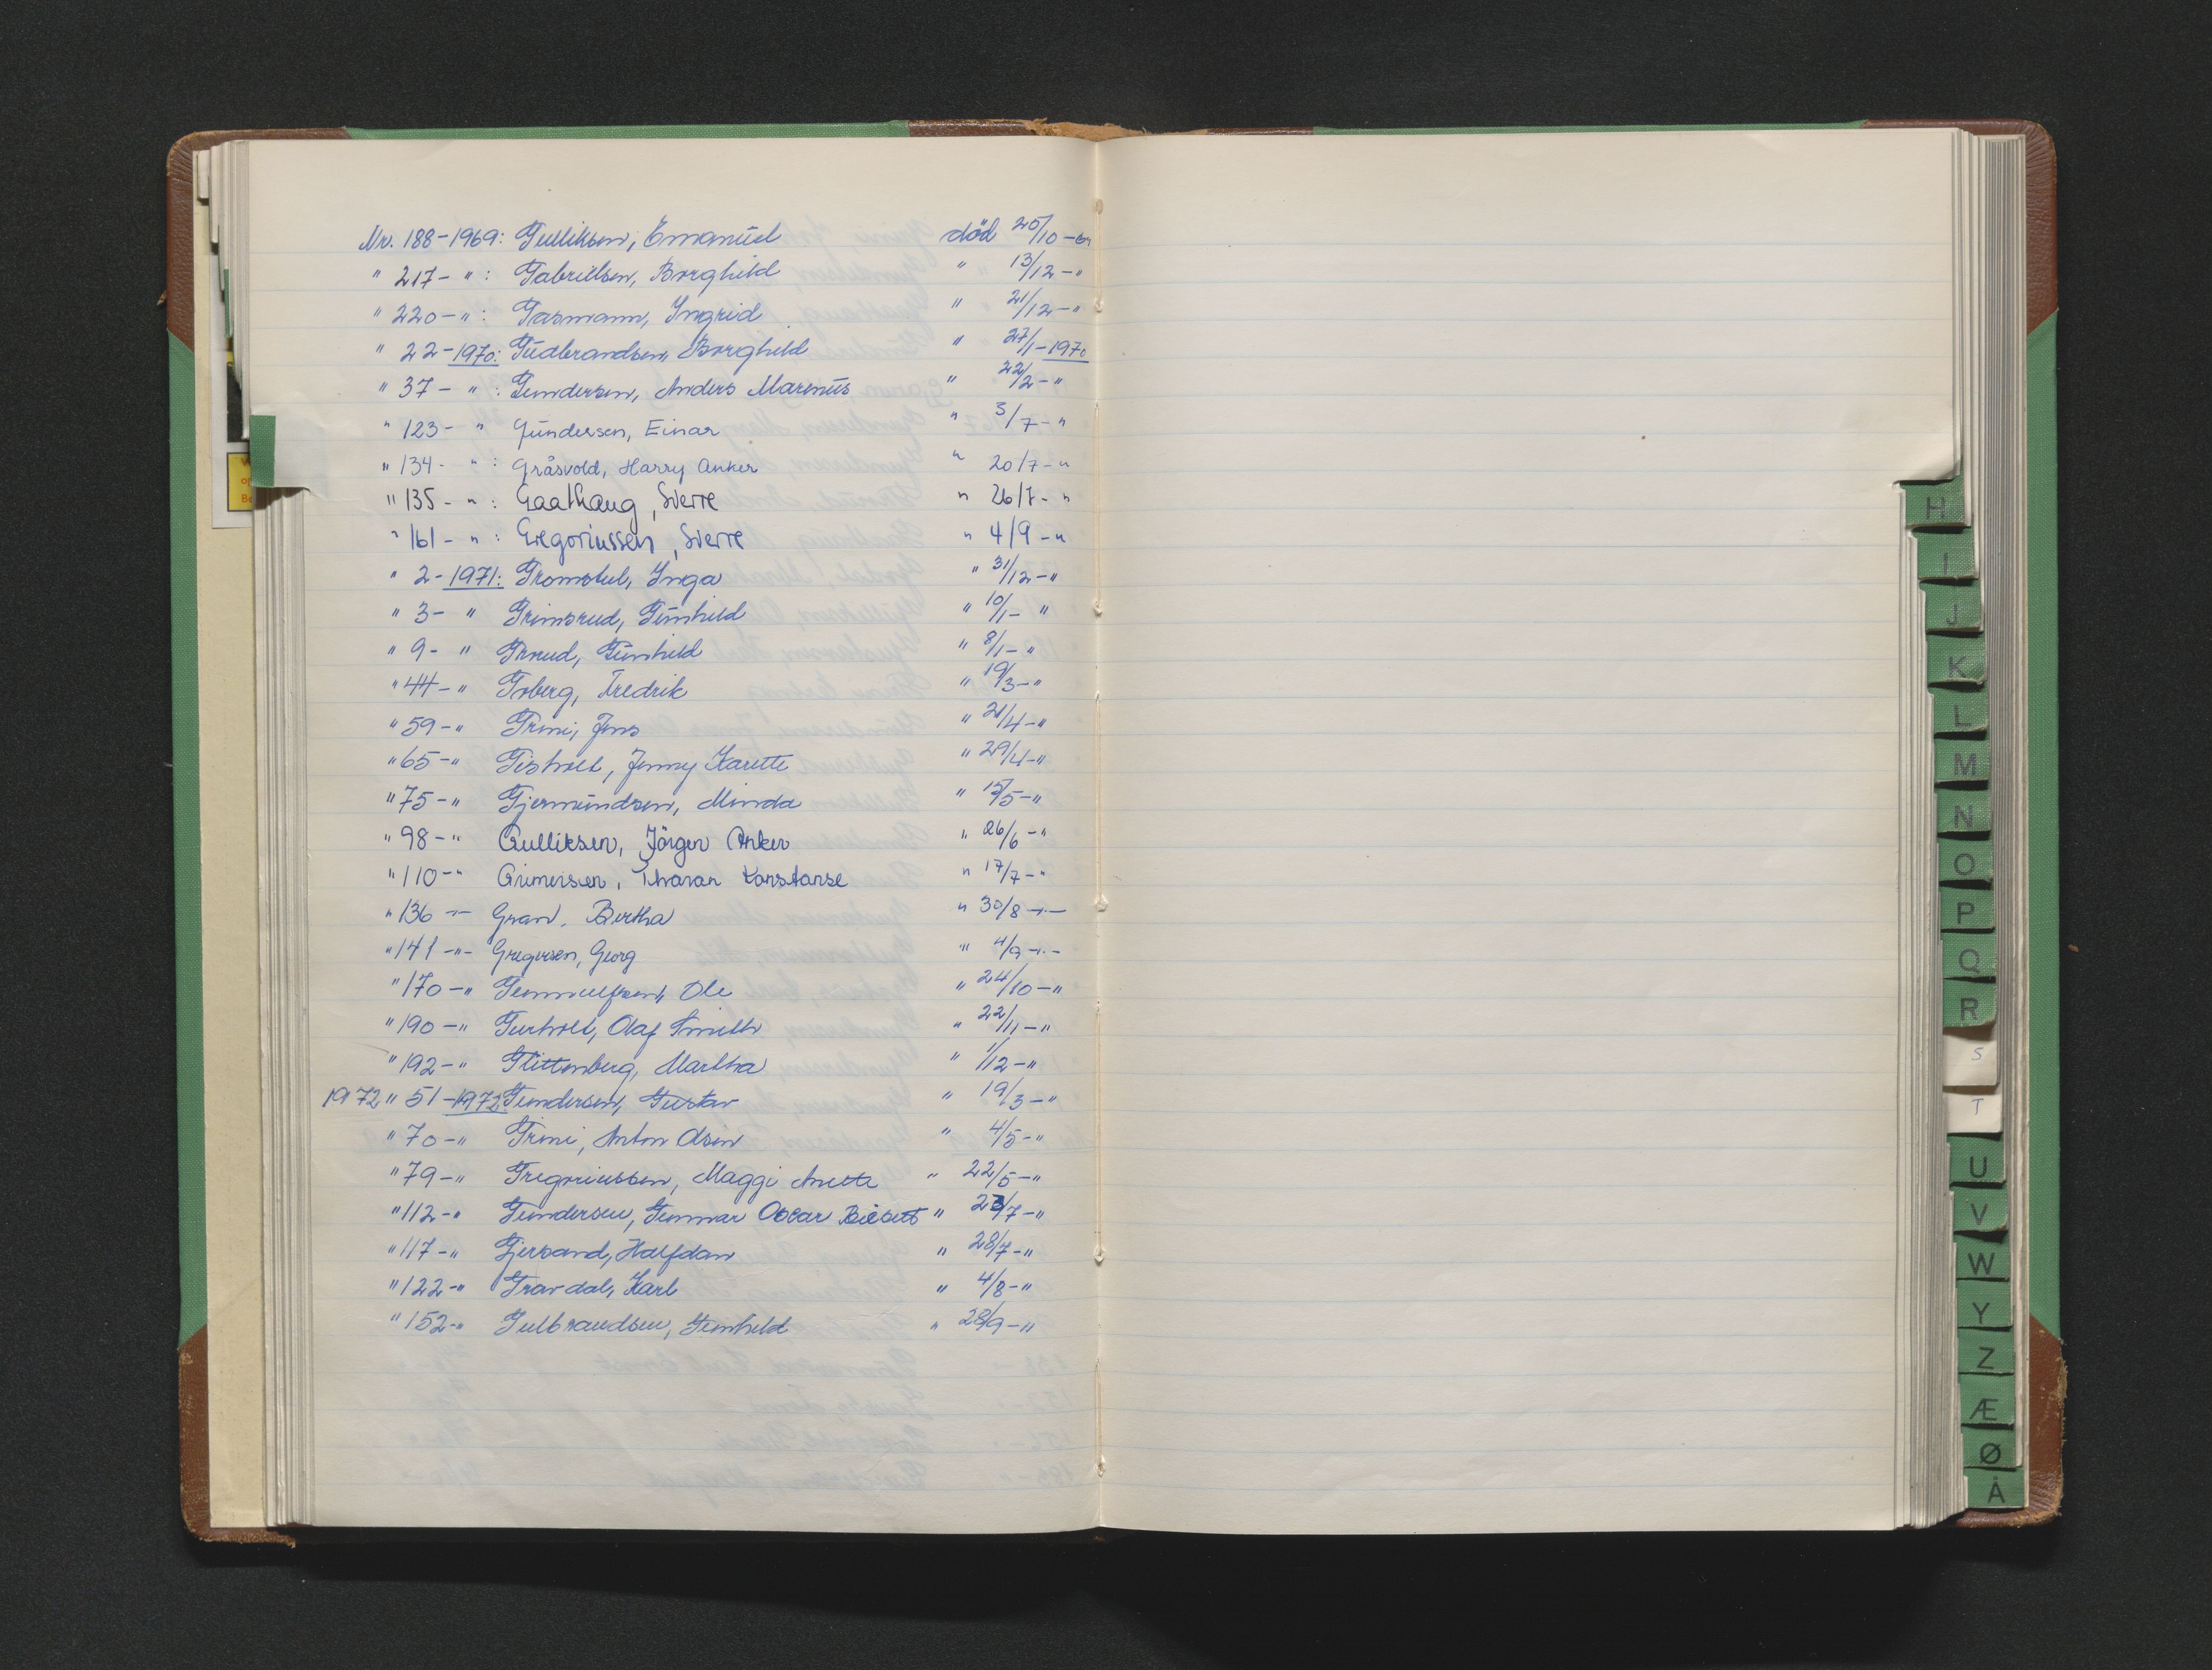 Nr. 188-1969: Gulliksen, Emanuel död 25/10-69
" 217- " : Gabrielsen, Borghild " 13/12- "
" 220- " : Gasmann, Ingrid " 21/12- "
" 22-1970: Gudbrandsen, Borghild " 27/1-1970
" 37- " : Gundersen, Anders Marenus " 22/2- "
" 123- " Gundersen, Einar " 3/7- "
" 134- " : Gråsvold, Harry Anker " 20/7- "
" 135- " : Gaathaug, Sverre " 26/7- "
" 161- " : Gregoriussen, Sverre " 4/9- "
" 2-1971: Gromstul, Inga " 31/12- "
" 3- " Grimsrud, Gunhild " 10/1- "
" 9- " Gunhild " 8/1- "
" 44- " Goberg, Fredrik " 19/3- "
" 59- " Grini, Jens " 21/4- "
" 65- " Gisholt, Jenny Karette " 29/4- "
" 75- " Gjermundsen, Minda " 15/5- "
" 98- " Gulliksen, Jörgen Anker " 26/6- "
" 110- " Thoran Konstanse " 17/7- "
" 136 -"- Gran, Bertha " 30/8 -"-
" 141 -"- Gregersen, Georg " 4/9 -"-
" 170- " Gunnulfsen, Ole " 24/10- "
" 190- " Gurholt, Olaf Smith " 22/11- "
" 192- " Glittenberg, Martha " 1/12- "
1972 " 51-1972: Gundersen, Gustav " 19/3- "
" 70- " Grini, Anton Osin " 4/5- "
" 79- " Gregoriussen, Maggi Anette " 22/5- "
" 112- " Gundersen, Gunnar Oscar " 23/7- "
" 117- " Gjersand, Halfdan " 28/7- "
" 122- " Gravdal, Karl " 4/8- "
" 152- " Gulbrandsen, Gunhild " 28/9- "
H
I
J
K
L
M
N
O
P
Q
R
S
T
U
V
W
Y
Z
Æ
Ø
Å